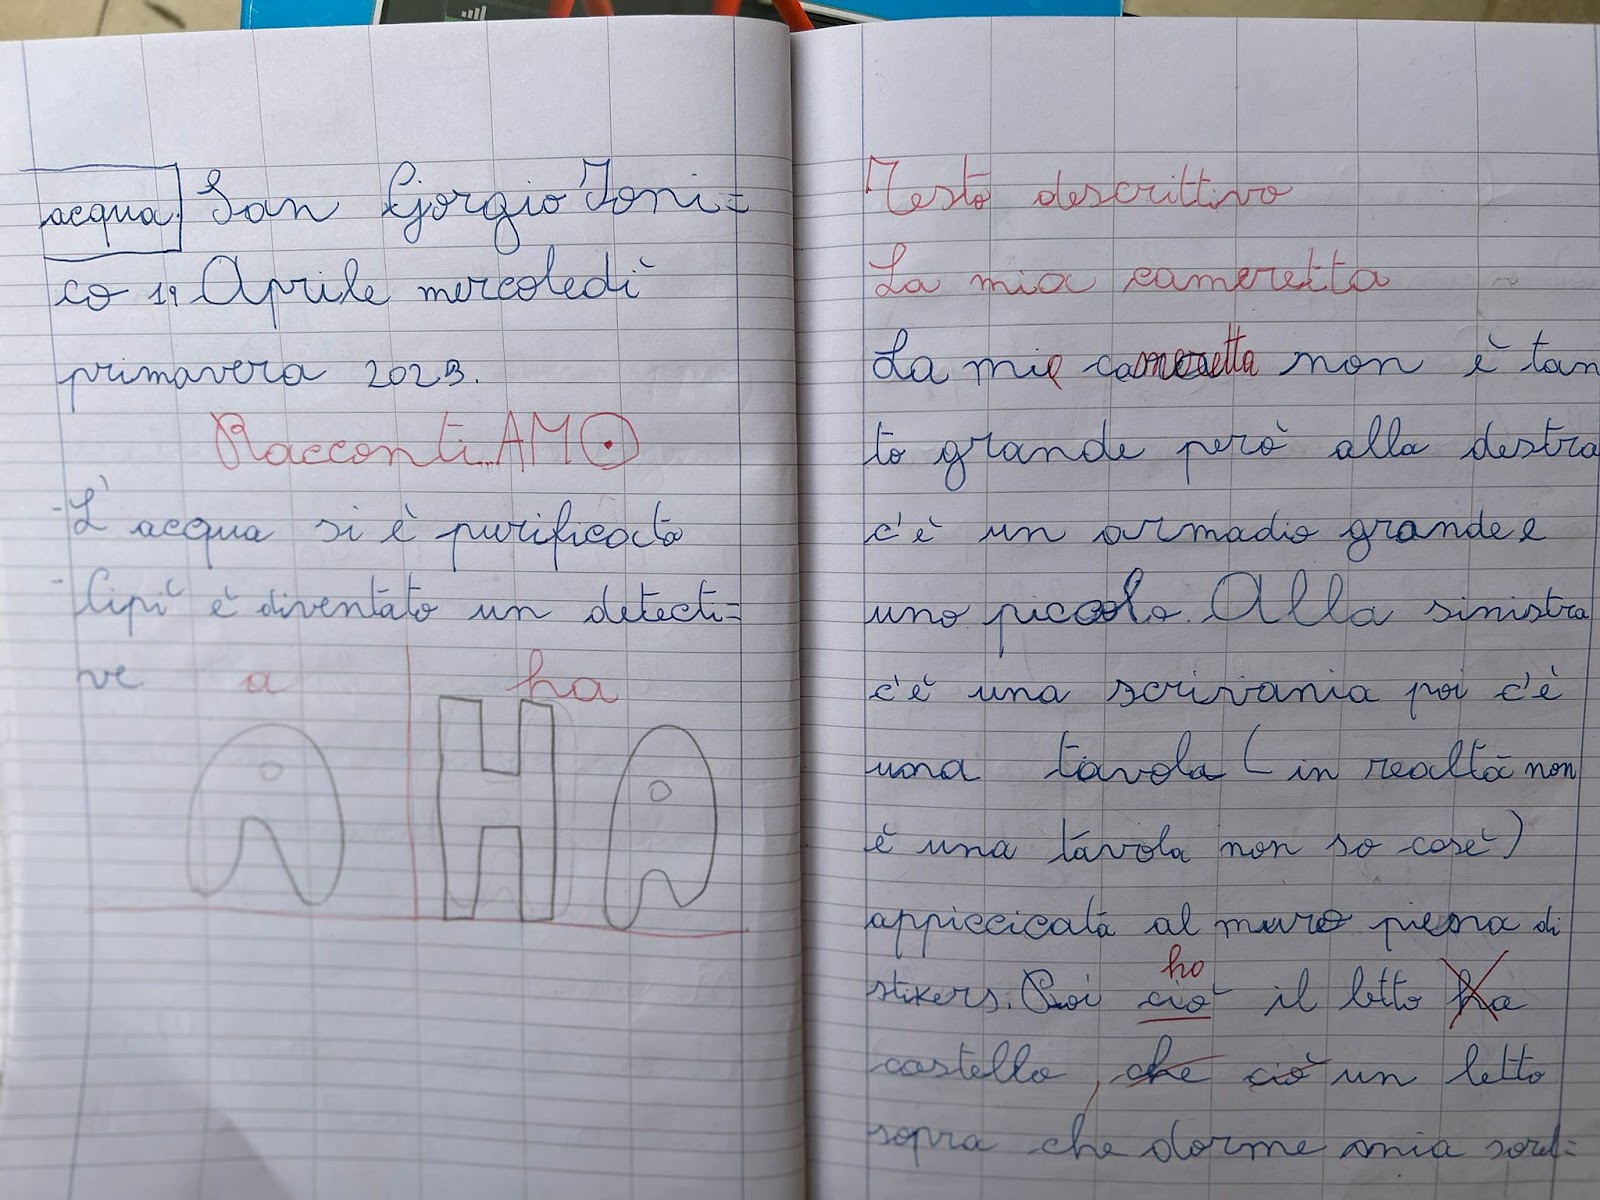 acqua. San Giorgio Joni=
co 19 Aprile mercoledì
primavera 2023.
Racconti...AMO
-L'acqua si è purificata
-Cipì è diventato un detecti=
ve a ha
A HA
Testo descrittivo
La mia cameretta
La mia cameretta non è tan
to grande però alla destra
c'è un armadio grande e
uno piccolo. Alla sinistra
c'è una scrivania poi c'è
una tavola (in realtà non
è una tavola non so cosè)
appiccicata al muro piena di
stikers. Poi ciò il letto ha
ho
castello, che ciò un letto
sopra che dorme mia sorel=